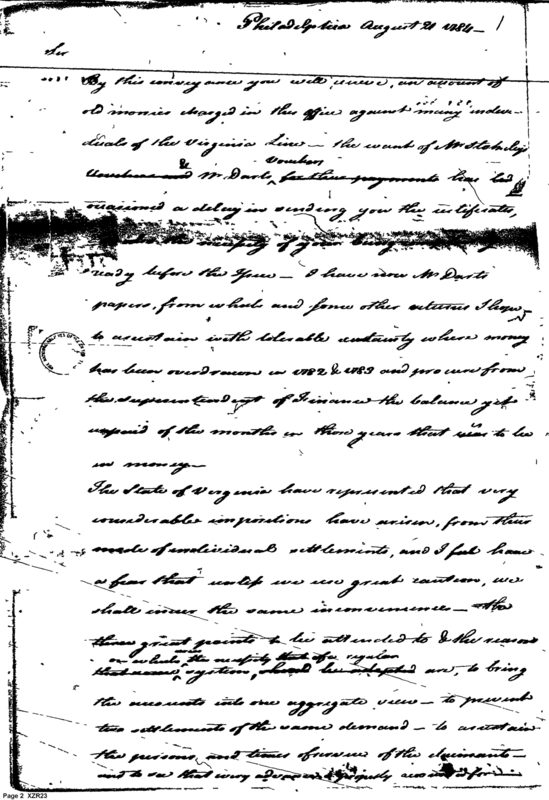 Philadelphia August 21 1784 —
1
Sir
By this conveyance you will receive, an account of
old monies charged in this office against many indivi-
duals of the Virginia Line — the want of Mr
Vouchers
& Mr Darts, for these payments has
occasioned a delay in sending you the certificates,
the necessity of your being
ready before the — I have now Mr Darts
papers, from which and some other returns I hope
to ascertain with tolerable certainty where money
has been overdrawn in 1782 & 1783 and procure from
the Superintendent of Finance the balance yet
unpaid of the months in those years that was to be
in money —
The State of Virginia have represented that very
considerable impositions have arisen, from their
mode of individual settlements, and I feel have
a fear that unless we use great caution, we
shall incur the same inconveniences — The
three great points to be attended to & the reasons
on which the necessity that of a regular
system, should be adopted are, to bring
the accounts into one aggregate view — to prevent
two settlements of the same demand — to ascertain
the persons, and times of service of the claimants —
and to see that every advance is properly accounted for —
Page 2 XZR23